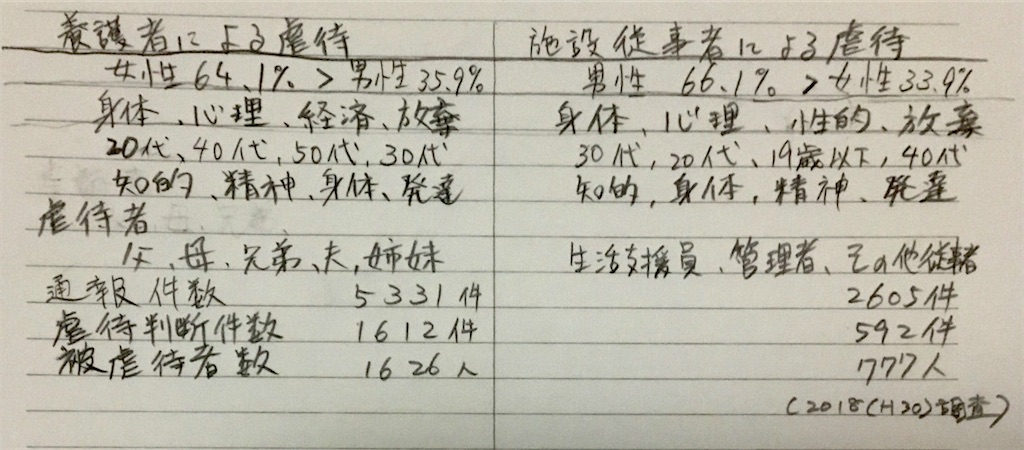 養護者による虐待
女性 64.1% > 男性 35.9%
身体、心理、経済、放棄
20代、40代、50代、30代
知的、精神、身体、発達
虐待者
父、母、兄弟、夫、姉妹
通報件数 5331件
虐待判断件数 1612件
被虐待者数 1626人
施設従事者による虐待
男性 66.1% > 女性 33.9%
身体、心理、性的、放棄
30代、20代、19歳以下、40代
知的、身体、精神、発達
生活支援員、管理者、その他従事者
2605件
592件
777人
(2018(H20)調査)